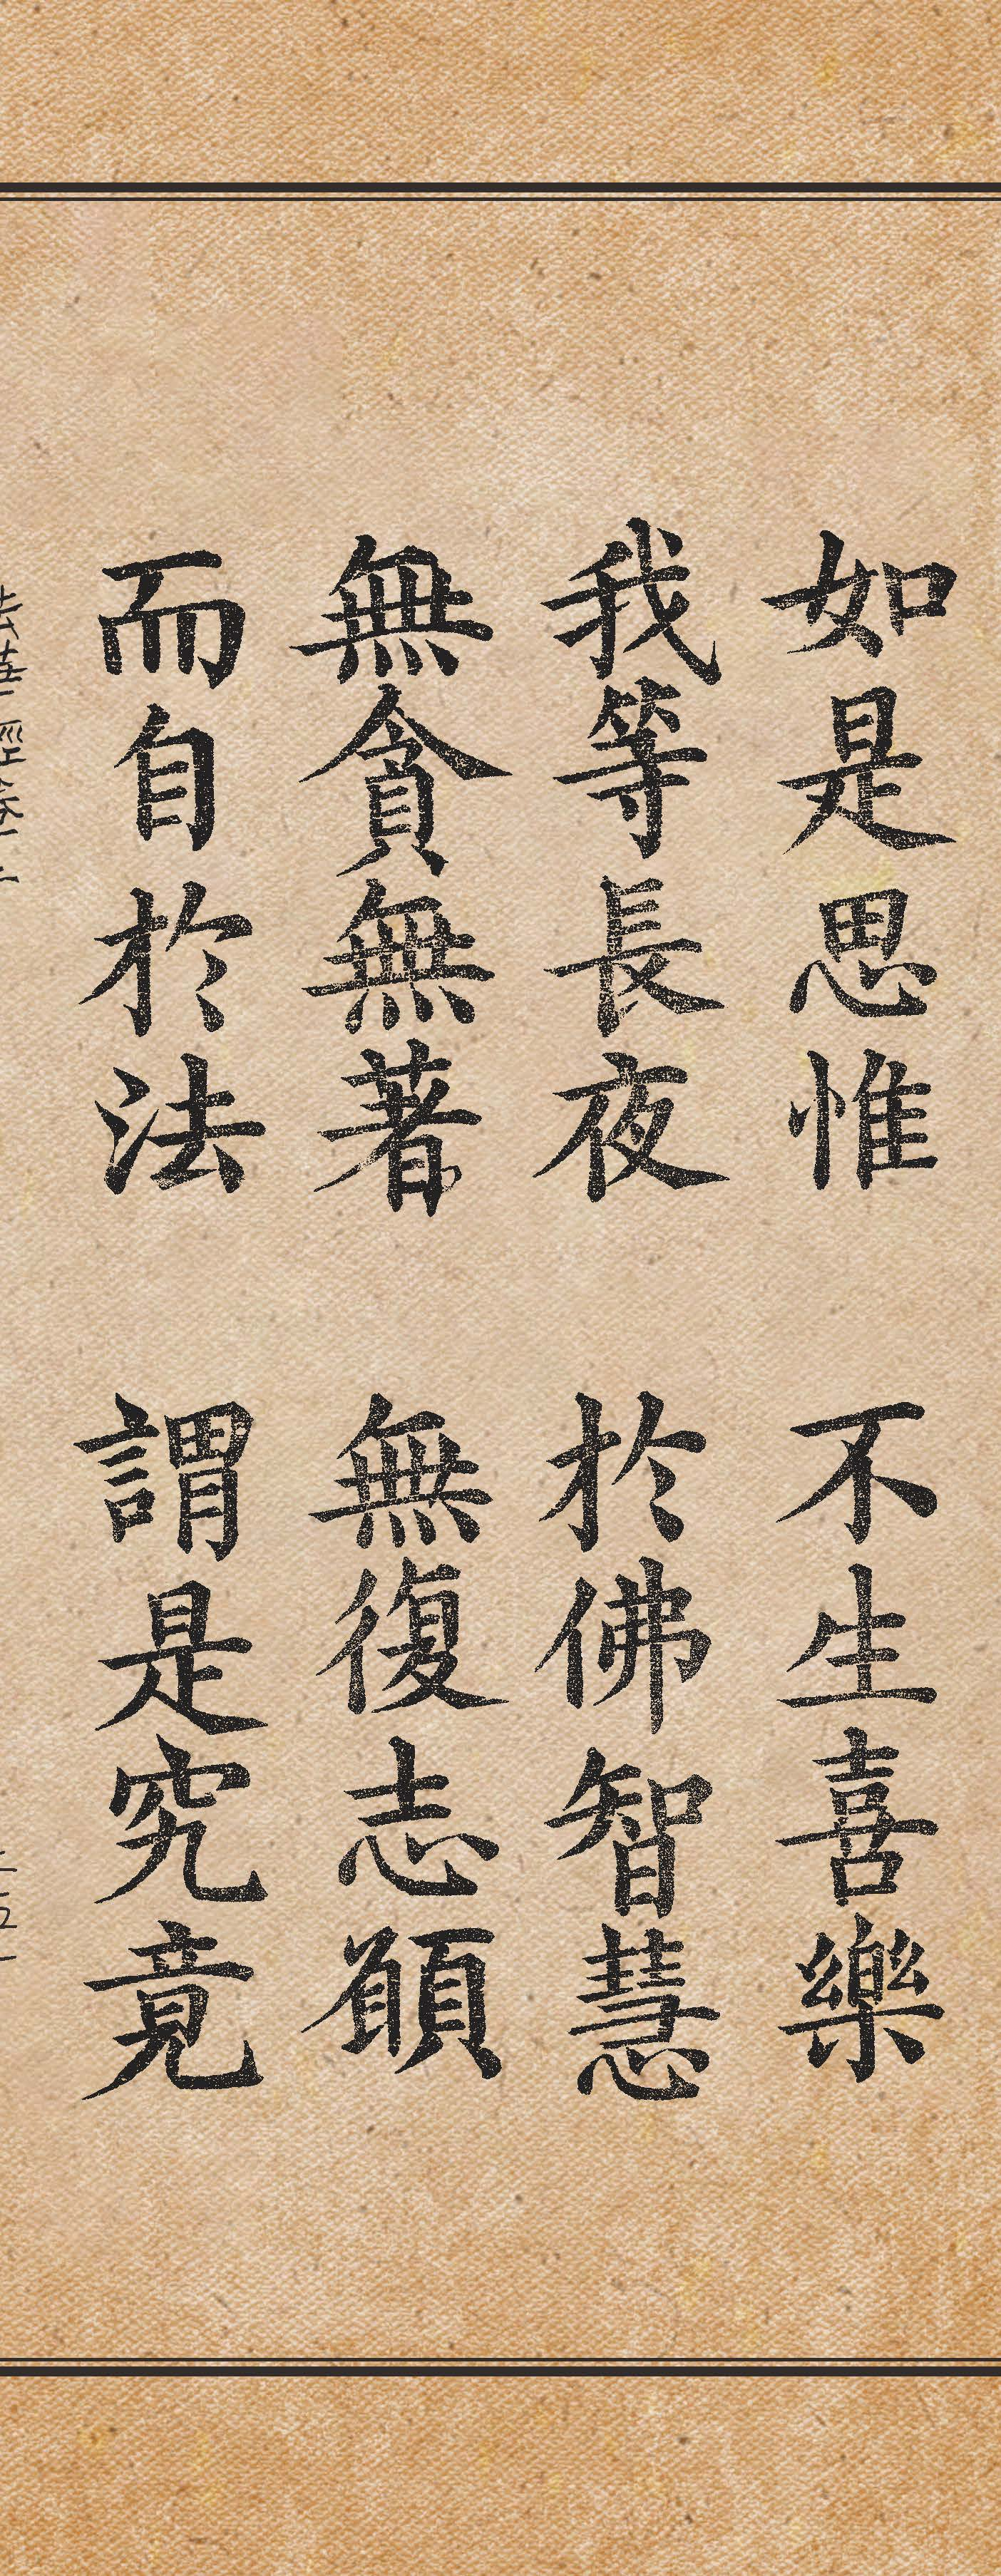 如是思惟 不生喜樂
我等長夜 於佛智慧
無貪無著 無復志願
而自於法 謂是究竟